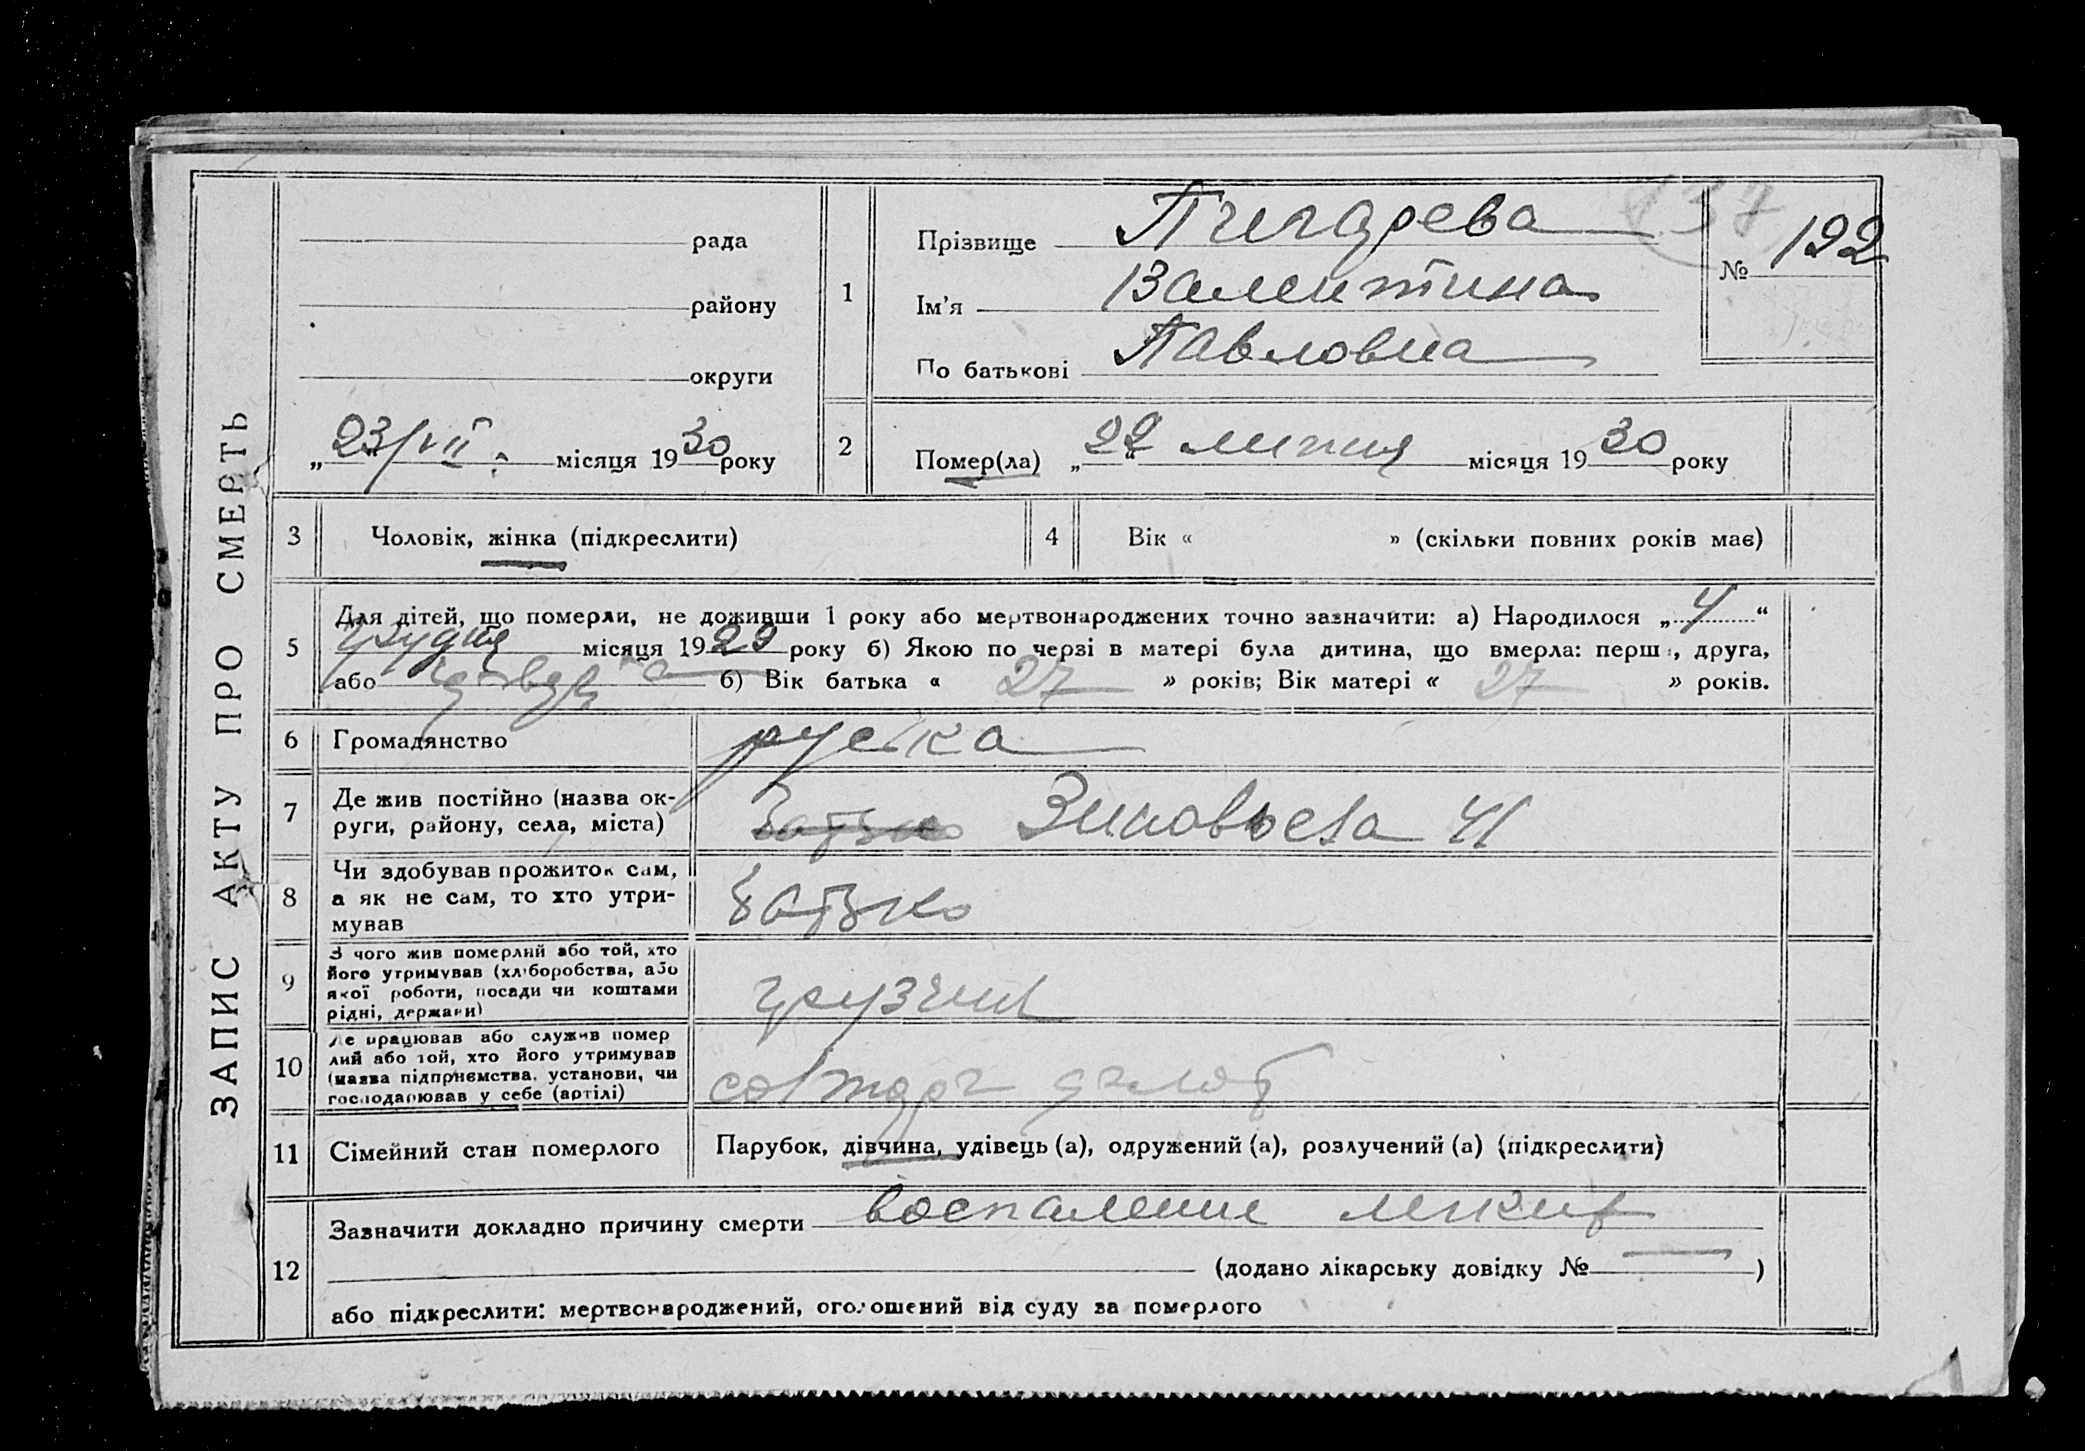 ЗАПИС АКТУ ПРО СМЕРТЬ
рада
району
округи
„23/VII.“ місяця 1930 року
1
Прізвище Пигарева
Ім'я Валентина
По батькові Павловна
137
№ 192
2
Помер(ла) „22“ липня місяця 1930 року
3 Чоловік, жінка (підкреслити)
4 Вік « » (скільки повних років має)
5 Для дітей, що померли, не доживши 1 року або мертвонароджених точно зазначити: а) Народилося „4“
грудня місяця 1929 року б) Якою по черзі в матері була дитина, що вмерла: перша, друга,
або четверта б) Вік батька « 27 » років; Вік матері « 27 » років.
6 Громадянство руська
7 Де жив постійно (назва ок-
руги, району, села, міста) батько Зиновьева 41
8 Чи здобував прожиток сам,
а як не сам, то хто утри-
мував батько
9 З чого жив померлий або той, хто
його утримував (хліборобства, або
якої роботи, посади чи коштами
рідні, держави) грузчик
10 Де працював або служив помер
лий або той, хто його утримував
(назва підприємства, установи, чи
господарював у себе (артілі) совторг
11 Сімейний стан померлого Парубок, дівчина, удівець (а), одружений (а), розлучений (а) (підкреслити)
12 Зазначити докладно причину смерти воспаление легких
(додано лікарську довідку № — )
або підкреслити: мертвонароджений, оголошений від суду за померлого